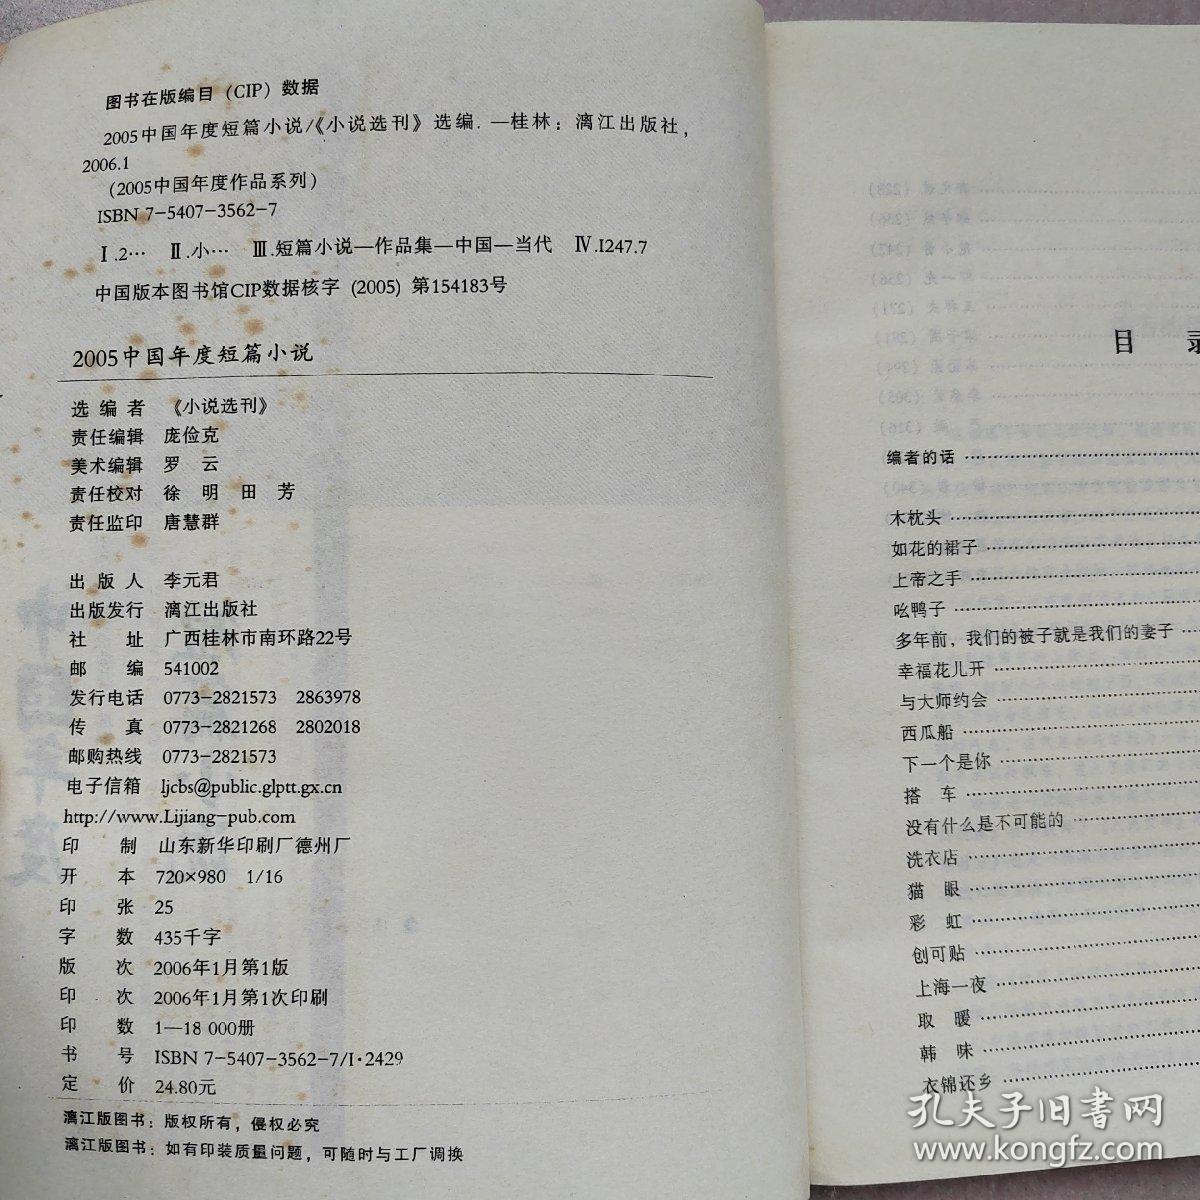 图书在版编目（CIP）数据
2005中国年度短篇小说/《小说选刊》选编. —桂林：漓江出版社，
2006.1
（2005中国年度作品系列）
ISBN 7-5407-3562-7
Ⅰ.2… Ⅱ.小… Ⅲ.短篇小说—作品集—中国—当代 Ⅳ.I247.7
中国版本图书馆CIP数据核字 (2005) 第154183号
2005中国年度短篇小说
选 编 者 《小说选刊》
责任编辑 庞俭克
美术编辑 罗 云
责任校对 徐 明 田 芳
责任监印 唐慧群
出 版 人 李元君
出版发行 漓江出版社
社 址 广西桂林市南环路22号
邮 编 541002
发行电话 0773-2821573 2863978
传 真 0773-2821268 2802018
邮购热线 0773-2821573
电子信箱 ljcbs@public.glptt.gx.cn
http://www.Lijiang-pub.com
印 制 山东新华印刷厂德州厂
开 本 720×980 1/16
印 张 25
字 数 435千字
版 次 2006年1月第1版
印 次 2006年1月第1次印刷
印 数 1—18 000册
书 号 ISBN 7-5407-3562-7/I·2429
定 价 24.80元
漓江版图书：版权所有，侵权必究
漓江版图书：如有印装质量问题，可随时与工厂调换
目 录
编者的话
木枕头
如花的裙子
上帝之手
吆鸭子
多年前，我们的被子就是我们的妻子
幸福花儿开
与大师约会
西瓜船
下一个是你
搭 车
没有什么是不可能的
洗衣店
猫 眼
彩 虹
创可贴
上海一夜
取 暖
韩 味
衣锦还乡
孔夫子旧书网
www.kongfz.com